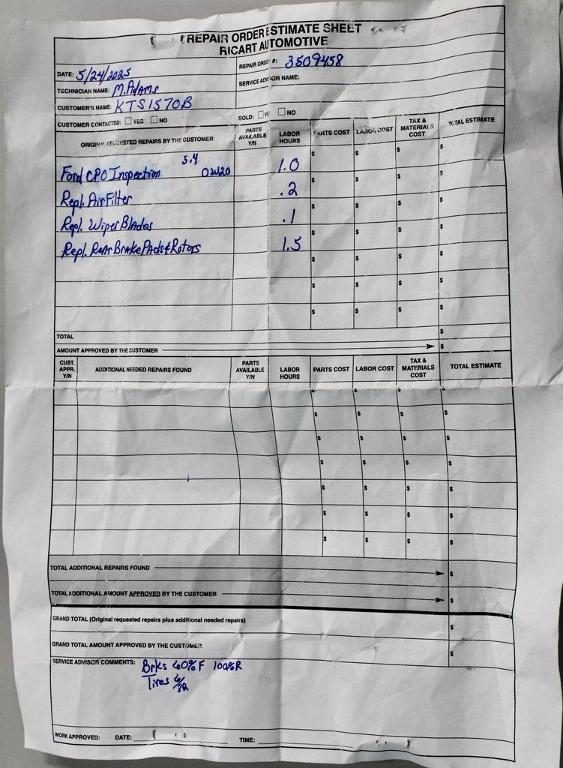 REPAIR ORDER ESTIMATE SHEET
RICART AUTOMOTIVE
DATE: 5/24/2025
REPAIR ORDER #: 3509458
TECHNICIAN NAME: M.Adams
SERVICE ADVISOR NAME:
CUSTOMER'S NAME: KTS1570B
CUSTOMER CONTACTED: YES NO
SOLD: YES NO
ORIGINAL REQUESTED REPAIRS BY THE CUSTOMER PARTS AVAILABLE Y/N LABOR HOURS PARTS COST LABOR COST TAX & MATERIALS COST TOTAL ESTIMATE
5.4
Ford CPO Inspection 0W20 1.0 $ $ $ $
Repl. Air Filter .2 $ $ $ $
Repl. Wiper Blades .1 $ $ $ $
Repl. Rear Brake Pads & Rotors 1.5 $ $ $ $
$ $ $ $
$ $ $ $
$ $ $ $
TOTAL $
AMOUNT APPROVED BY THE CUSTOMER $
CUST. APPR. Y/N ADDITIONAL NEEDED REPAIRS FOUND PARTS AVAILABLE Y/N LABOR HOURS PARTS COST LABOR COST TAX & MATERIALS COST TOTAL ESTIMATE
$ $ $ $
$ $ $ $
$ $ $ $
$ $ $ $
$ $ $ $
$ $ $ $
$ $ $ $
TOTAL ADDITIONAL REPAIRS FOUND $
TOTAL ADDITIONAL AMOUNT APPROVED BY THE CUSTOMER $
GRAND TOTAL (Original requested repairs plus additional needed repairs) $
GRAND TOTAL AMOUNT APPROVED BY THE CUSTOMER $
SERVICE ADVISOR COMMENTS: Brks 60%F 100%R
Tires 6/32
WORK APPROVED: DATE: TIME: